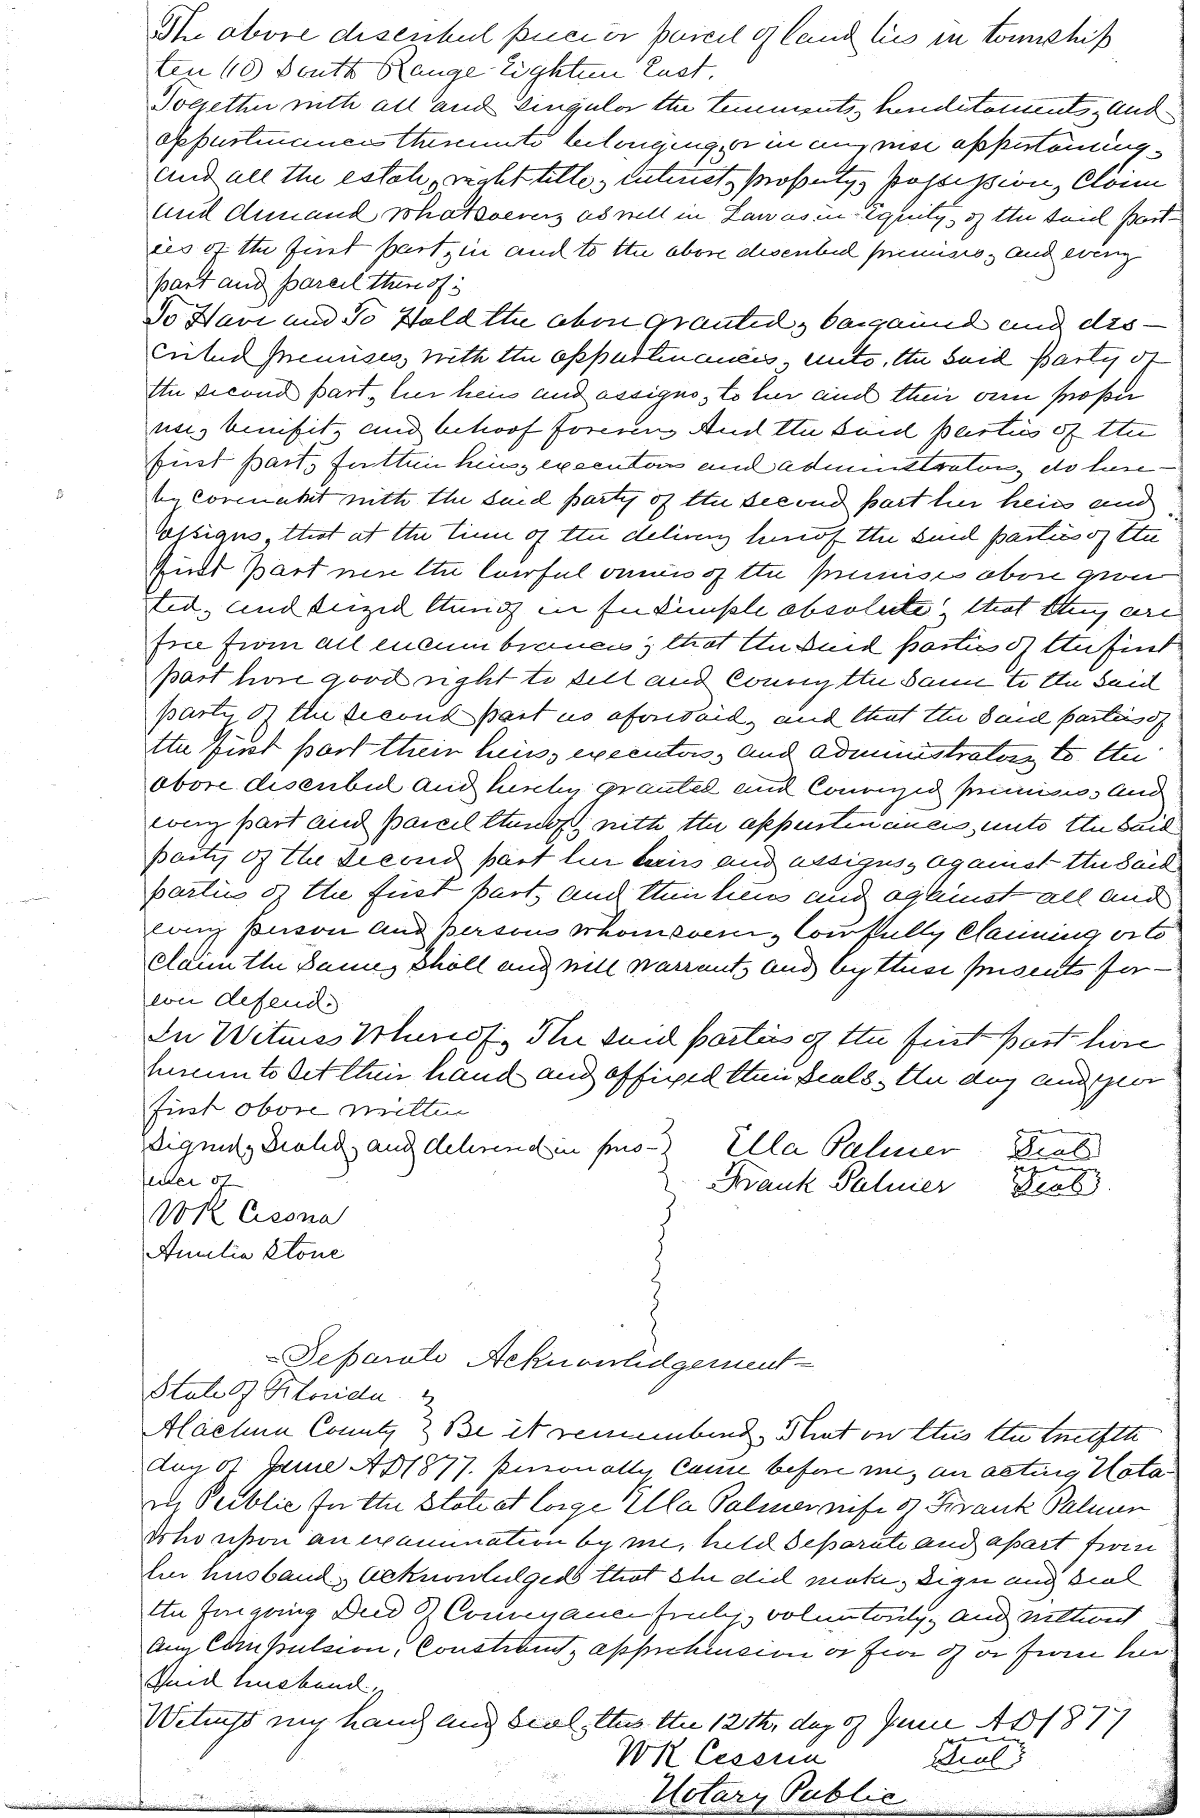 The above described piece or parcel of land lies in township
ten (10) South Range Eighteen East.
Together with all and singular the tenements, hereditaments, and
appurtinances thereunto belonging, or in any wise appertaining,
and all the estate, right title, interest, property, possession, Claim
and demand whatsoever, as well in Law as in Equity, of the said part-
ies of the first part, in and to the above described premises, and every
part and parcel thereof;
To Have and To Hold the above granted, bargained and des-
cribed premises, with the appurtinances, unto, the said party of
the second part, her heirs and assigns, to her and their own proper
use, benifit, and behoof forever, And the said parties of the
first part, for their heirs, executors and administrators, do here-
by covenant with the said party of the second part her heirs and
assigns, that at the time of the delivery hereof the said parties of the
first part were the lawful owners of the premises above gran
ted, and seized thereof in fee simple absolute; that they are
free from all encumbrances; that the said parties of the first
part have good right to sell and convey the same to the said
party of the second part as aforesaid, and that the said parties of
the first part their heirs, executors, and administrators, to the
above described and hereby granted and conveyed premises, and
every part and parcel thereof, with the appurtinances, unto the said
party of the second part her heirs and assigns, against the said
parties of the first part, and their heirs and against all and
every person and persons whomsoever, lawfully claiming or to
claim the same, shall and will warrant, and by these presents for-
ever defend.
In Witness Whereof, The said parties of the first part have
hereunto set their hand and affixed their seals, the day and year
first above written
Signed, Sealed, and delivered in pres- } Ella Palmer Seal
ence of Frank Palmer Seal
WR Cessna
Amelia Stone
=Separate Acknowledgement=
State of Florida }
Alachua County } Be it remembered, That on this the twelfth
day of June AD1877. personally came before me, an acting Nota-
ry Public for the State at large Ella Palmer wife of Frank Palmer
who upon an examination by me, held separate and apart from
her husband, acknowledged that she did make, sign and seal
the foregoing Deed of Conveyance freely, voluntarily, and without
any compulsion, constraint, apprehension or fear of or from her
said husband.
Witness my hand and seal, this the 12th, day of June AD1877
WR Cessna Seal
Notary Public